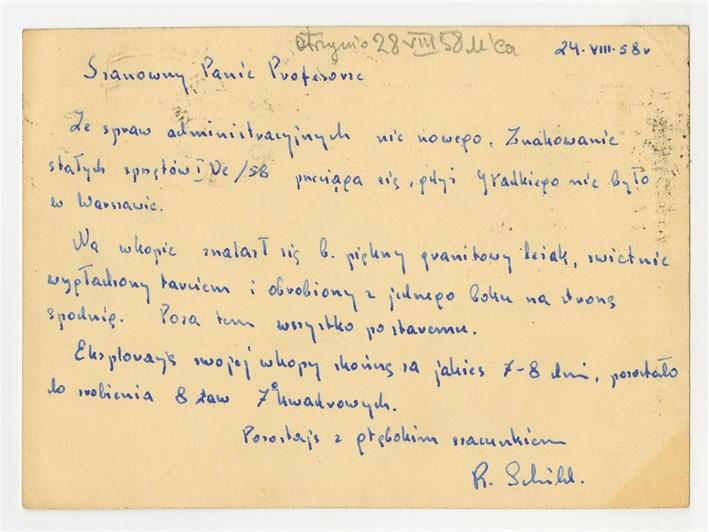 28 VIII 58
24. VIII. 58 r
Szanowny Panie Profesorze
Ze spraw administracyjnych nic nowego. Znakowanie
stałych sprzętów I De/58 przeciąga się, gdyż Gładkiego nie było
w Warszawie.
Na wkopie znalazł się b. piękny granitowy leżak, świetnie
wygładzony tarciem i obrobiony z jednego boku na stronę
spodnią. Poza tem wszystko po staremu.
Eksplorację swojej wkopy skończę za jakieś 7-8 dni, pozostało
do zrobienia 8 kwadrowych.
Pozostaję z głębokim szacunkiem
R. Schild.